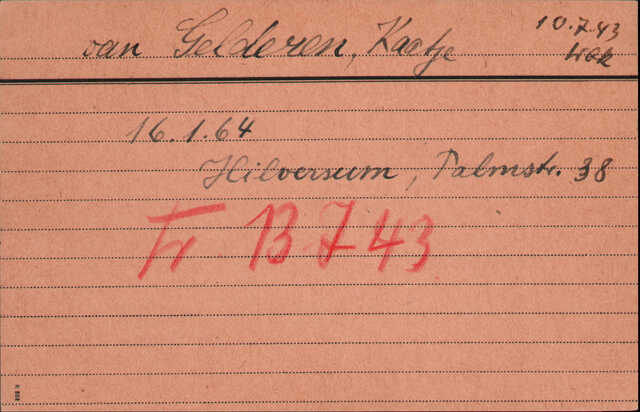 van Gelderen, Kaatje
10.7.43
16.1.64
Hilversum, Palmstr. 38
Tr 13 7 43